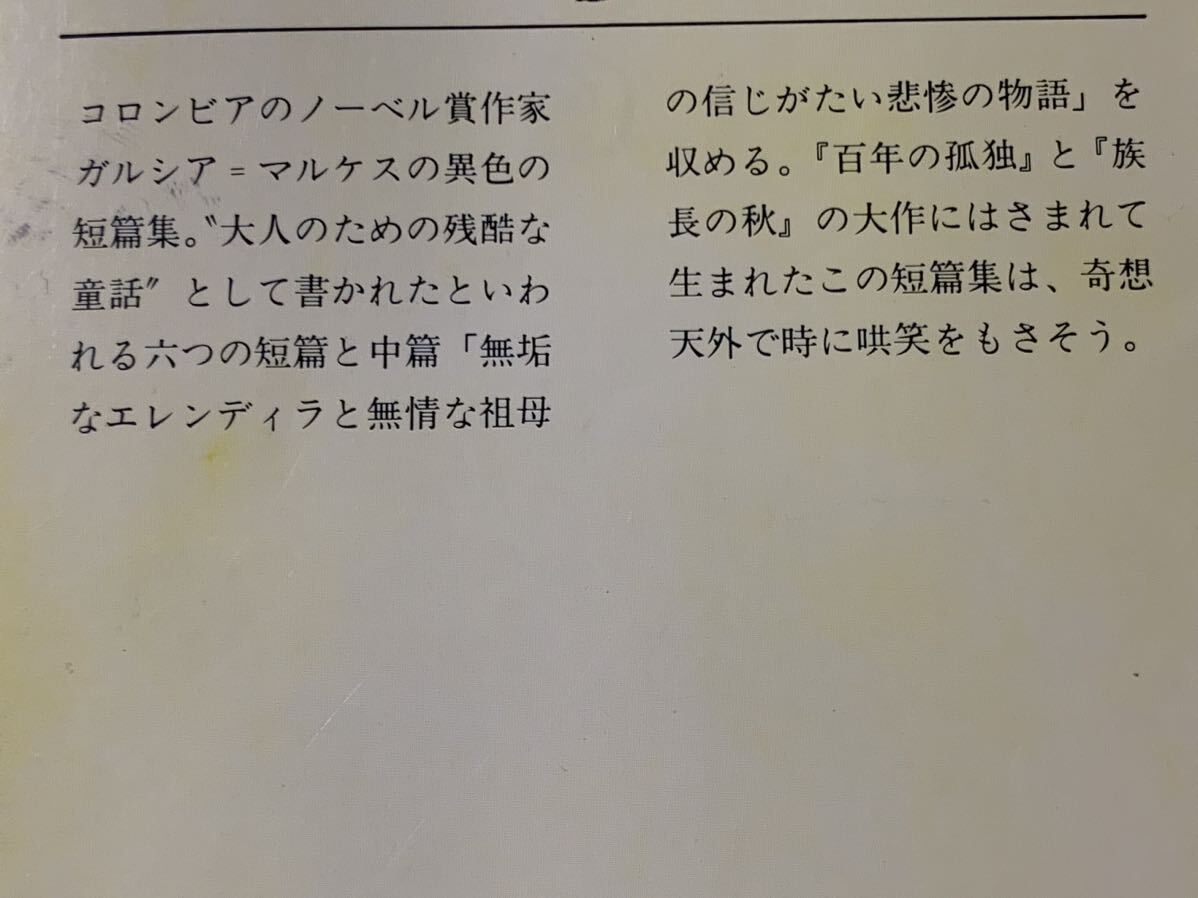 コロンビアのノーベル賞作家
ガルシア＝マルケスの異色の
短篇集。〝大人のための残酷な
童話〞として書かれたといわ
れる六つの短篇と中篇「無垢
なエレンディラと無情な祖母
の信じがたい悲惨の物語」を
収める。『百年の孤独』と『族
長の秋』の大作にはさまれて
生まれたこの短篇集は、奇想
天外で時に哄笑をもさそう。